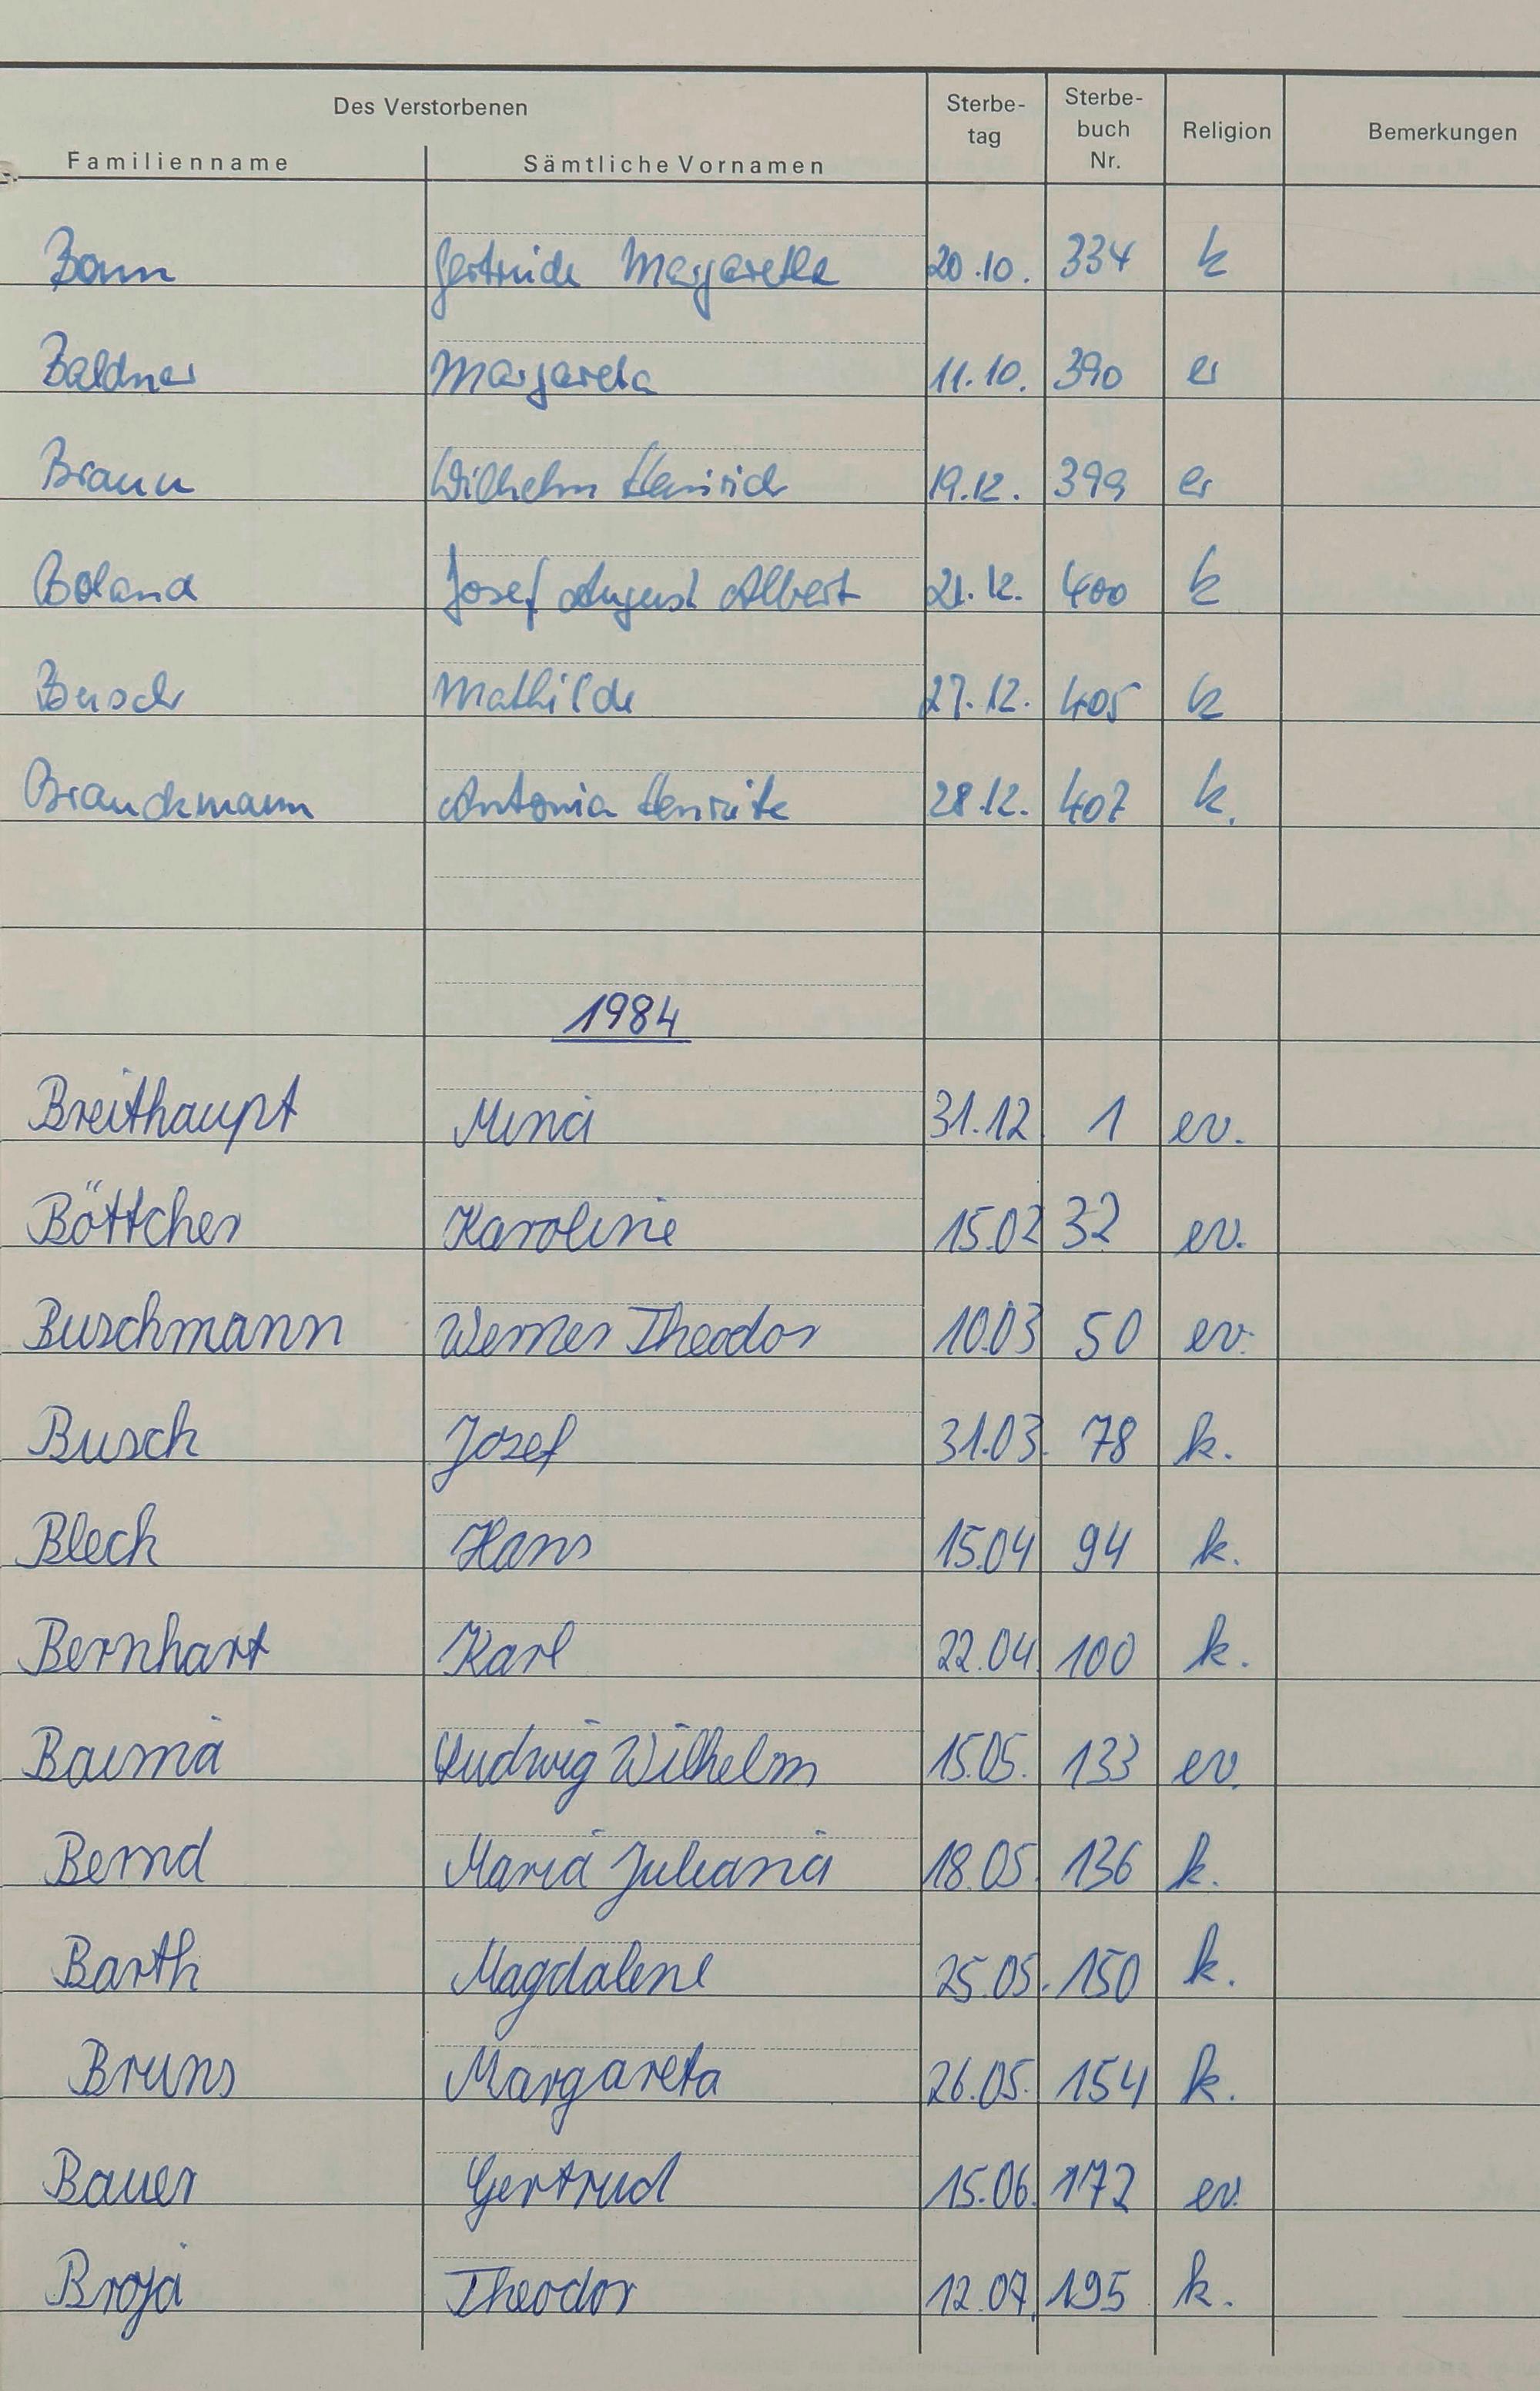 Des Verstorbenen
Familienname Sämtliche Vornamen Sterbe-tag Sterbe-buch Nr. Religion Bemerkungen
Bonn Gertrude Margaretha 20.10. 334 k
Baldner Margareta 11.10. 390 ev
Braun Wilhelm Heinrich 19.12. 399 ev
Boland Josef August Albert 21.12. 400 k
Busch Mathilde 27.12. 405 k
Brauckmann Antonia Henriette 28.12. 407 k.
1984
Breithaupt Mina 31.12. 1 ev.
Böttcher Karoline 15.02 32 ev.
Buschmann Werner Theodor 10.03 50 ev.
Busch Josef 31.03. 78 k.
Blech Hans 15.04 94 k.
Bernhart Karl 22.04. 100 k.
Baima Ludwig Wilhelm 15.05. 133 ev.
Bernd Maria Juliana 18.05. 136 k.
Barth Magdalene 25.05. 150 k.
Bruns Margareta 26.05. 154 k.
Bauer Gertrud 15.06. 172 ev.
Broja Theodor 12.07. 195 k.